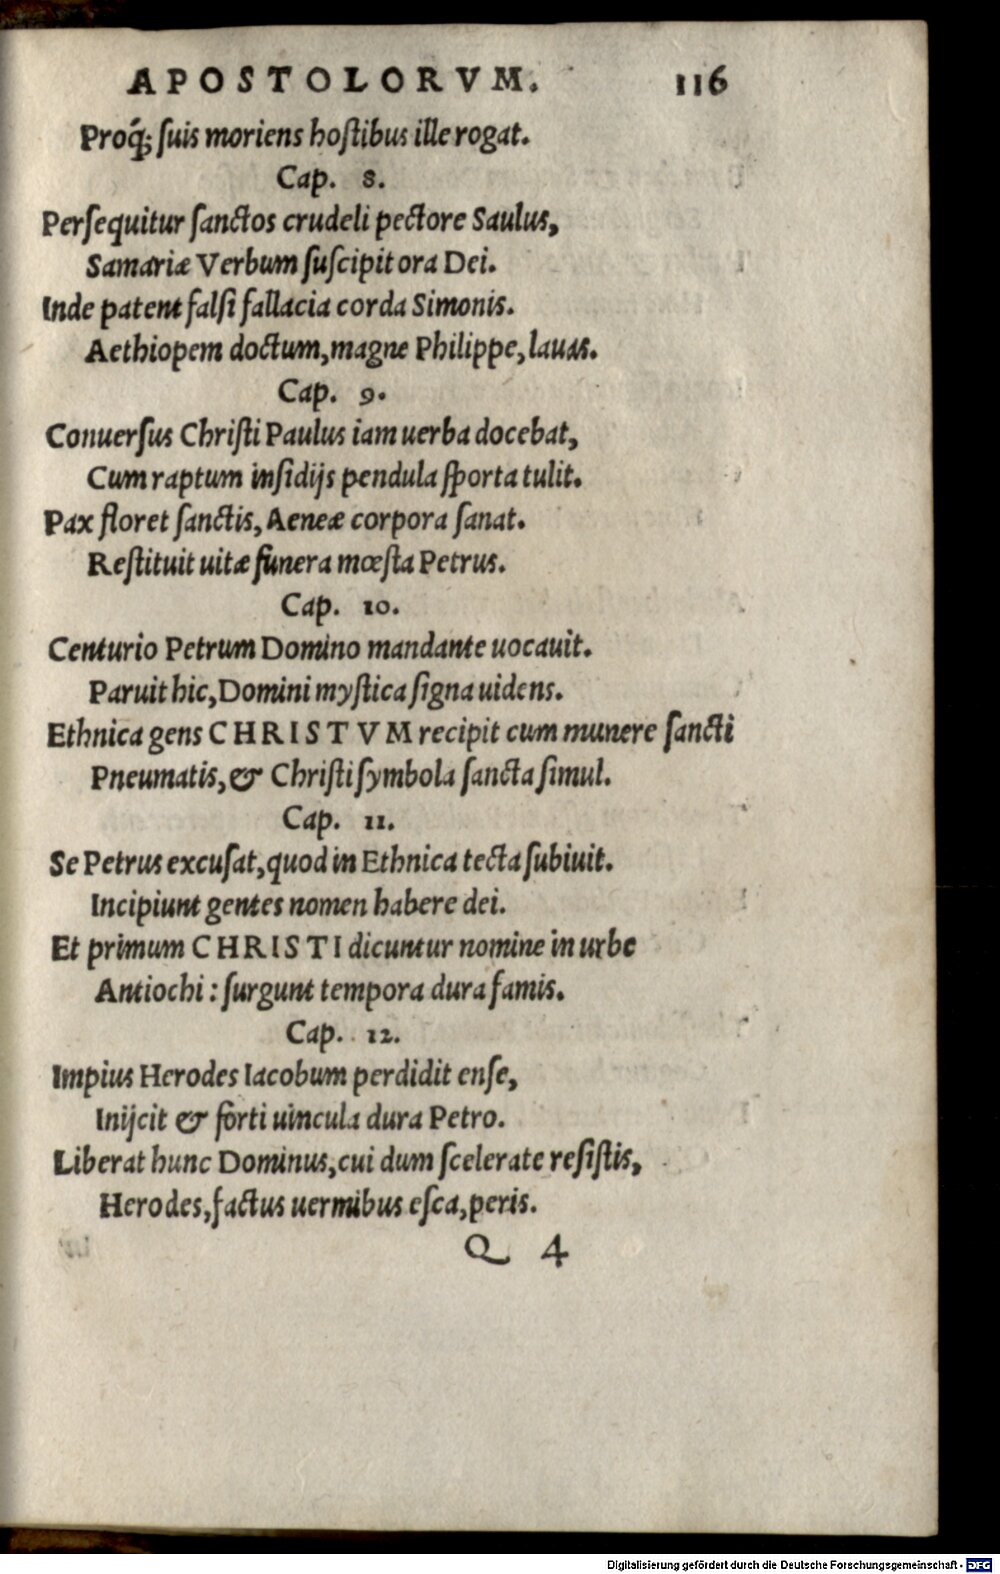 APOSTOLORVM. 116
Proq́; ſuis moriens hoſtibus ille rogat.
Cap. 8.
Perſequitur ſanctos crudeli pectore Saulus,
Samariæ Verbum ſuſcipit ora Dei.
Inde patent falſi fallacia corda Simonis.
Aethiopem doctum, magne Philippe, lauas.
Cap. 9.
Conuerſus Chriſti Paulus iam uerba docebat,
Cum raptum inſidijs pendula ſporta tulit.
Pax floret ſanctis, Aeneæ corpora ſanat.
Reſtituit uitæ funera mœſta Petrus.
Cap. 10.
Centurio Petrum Domino mandante uocauit.
Paruit hic, Domini myſtica ſigna uidens.
Ethnica gens CHRISTVM recipit cum munere ſancti
Pneumatis, & Chriſti ſymbola ſancta ſimul.
Cap. 11.
Se Petrus excuſat, quod in Ethnica tecta ſubiuit.
Incipiunt gentes nomen habere dei.
Et primum CHRISTI dicuntur nomine in urbe
Antiochi: ſurgunt tempora dura famis.
Cap. 12.
Impius Herodes Iacobum perdidit enſe,
Inijcit & forti uincula dura Petro.
Liberat hunc Dominus, cui dum ſcelerate reſiſtis,
Herodes, factus uermibus eſca, peris.
Q 4
Digitalisierung gefördert durch die Deutsche Forschungsgemeinschaft - DFG